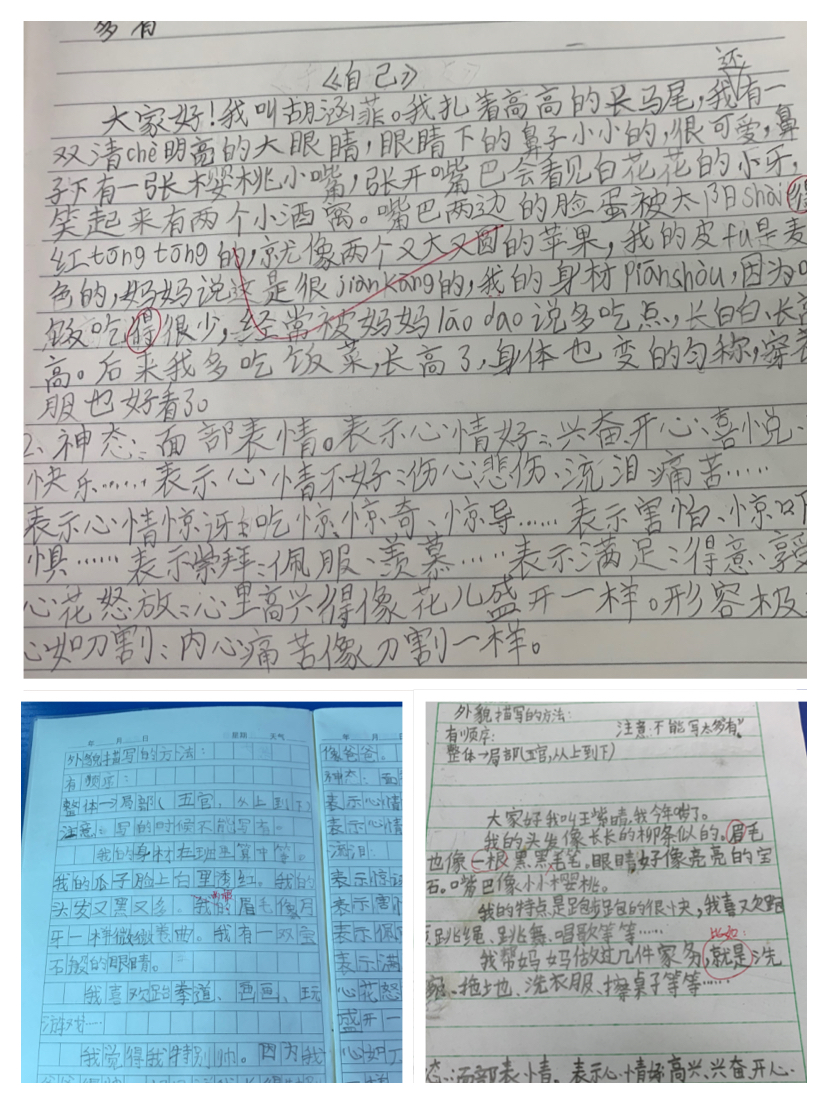 多有
《自己》
还
大家好!我叫胡涵菲。我扎着高高的长马尾,我有一
双清chè明亮的大眼睛,眼睛下的鼻子小小的,很可爱,鼻
子下有一张樱桃小嘴,张开嘴巴会看见白花花的小牙,
笑起来有两个小酒窝。嘴巴两边的脸蛋被太阳shài得
红tōng tōng的,就像两个又大又圆的苹果,我的皮fū是麦
色的,妈妈说这是很jiànkāng的,我的身材piānshòu,因为
饭吃得很少,经常被妈妈láo dao说多吃点,长白白、长高
高。后来我多吃饭菜,长高了,身体也变的匀称,穿衣
服也好看了。
2、神态:面部表情。表示心情好:兴奋、开心、喜悦、
快乐……表示心情不好:伤心悲伤、流泪、痛苦……
表示心情惊讶:吃惊、惊奇、惊导……表示害怕、惊吓
惧……表示崇拜:佩服、羡慕……表示满足:得意、享受
心花怒放:心里高兴得像花儿盛开一样。形容极
心如刀割:内心痛苦像刀割一样。
年 月 日 星期 天气
外貌描写的方法:
有顺序:
整体→局部(五官,从上到下)
注意:写的时候不能写有。
我的身材在班里算中等。
我的瓜子脸上白里透红。我的
头发又黑又多。我的眉毛像月
牙一样微微卷曲。我有一双宝
石般的眼睛。
我喜欢跆拳道、画画、玩
游戏……
我觉得我特别帅。因为我
年 月 日
像爸爸。
神态:面
表示心情
表示心情
流泪:
表示惊讶
表示害怕
表示佩
表示满
心花怒
盛开一
心如刀
外貌描写的方法:
有顺序: 注意:不能写太多"有"
整体→局部(五官,从上到下)
大家好我叫王紫晴,我今年啲了。
我的头发像长长的柳条似的。眉毛
也像一根黑黑毛笔。眼睛好像亮亮的宝
石。嘴巴像小小樱桃。
我的特点是跑步跑包的很快,我喜又欠跑
跳绳、跳舞、唱歌等等……
比如:
我帮妈妈做过几件家务,就是洗
碗、拖地、洗衣服、擦桌子等等……
态:面部表情。表示心情好高兴、兴奋开心、